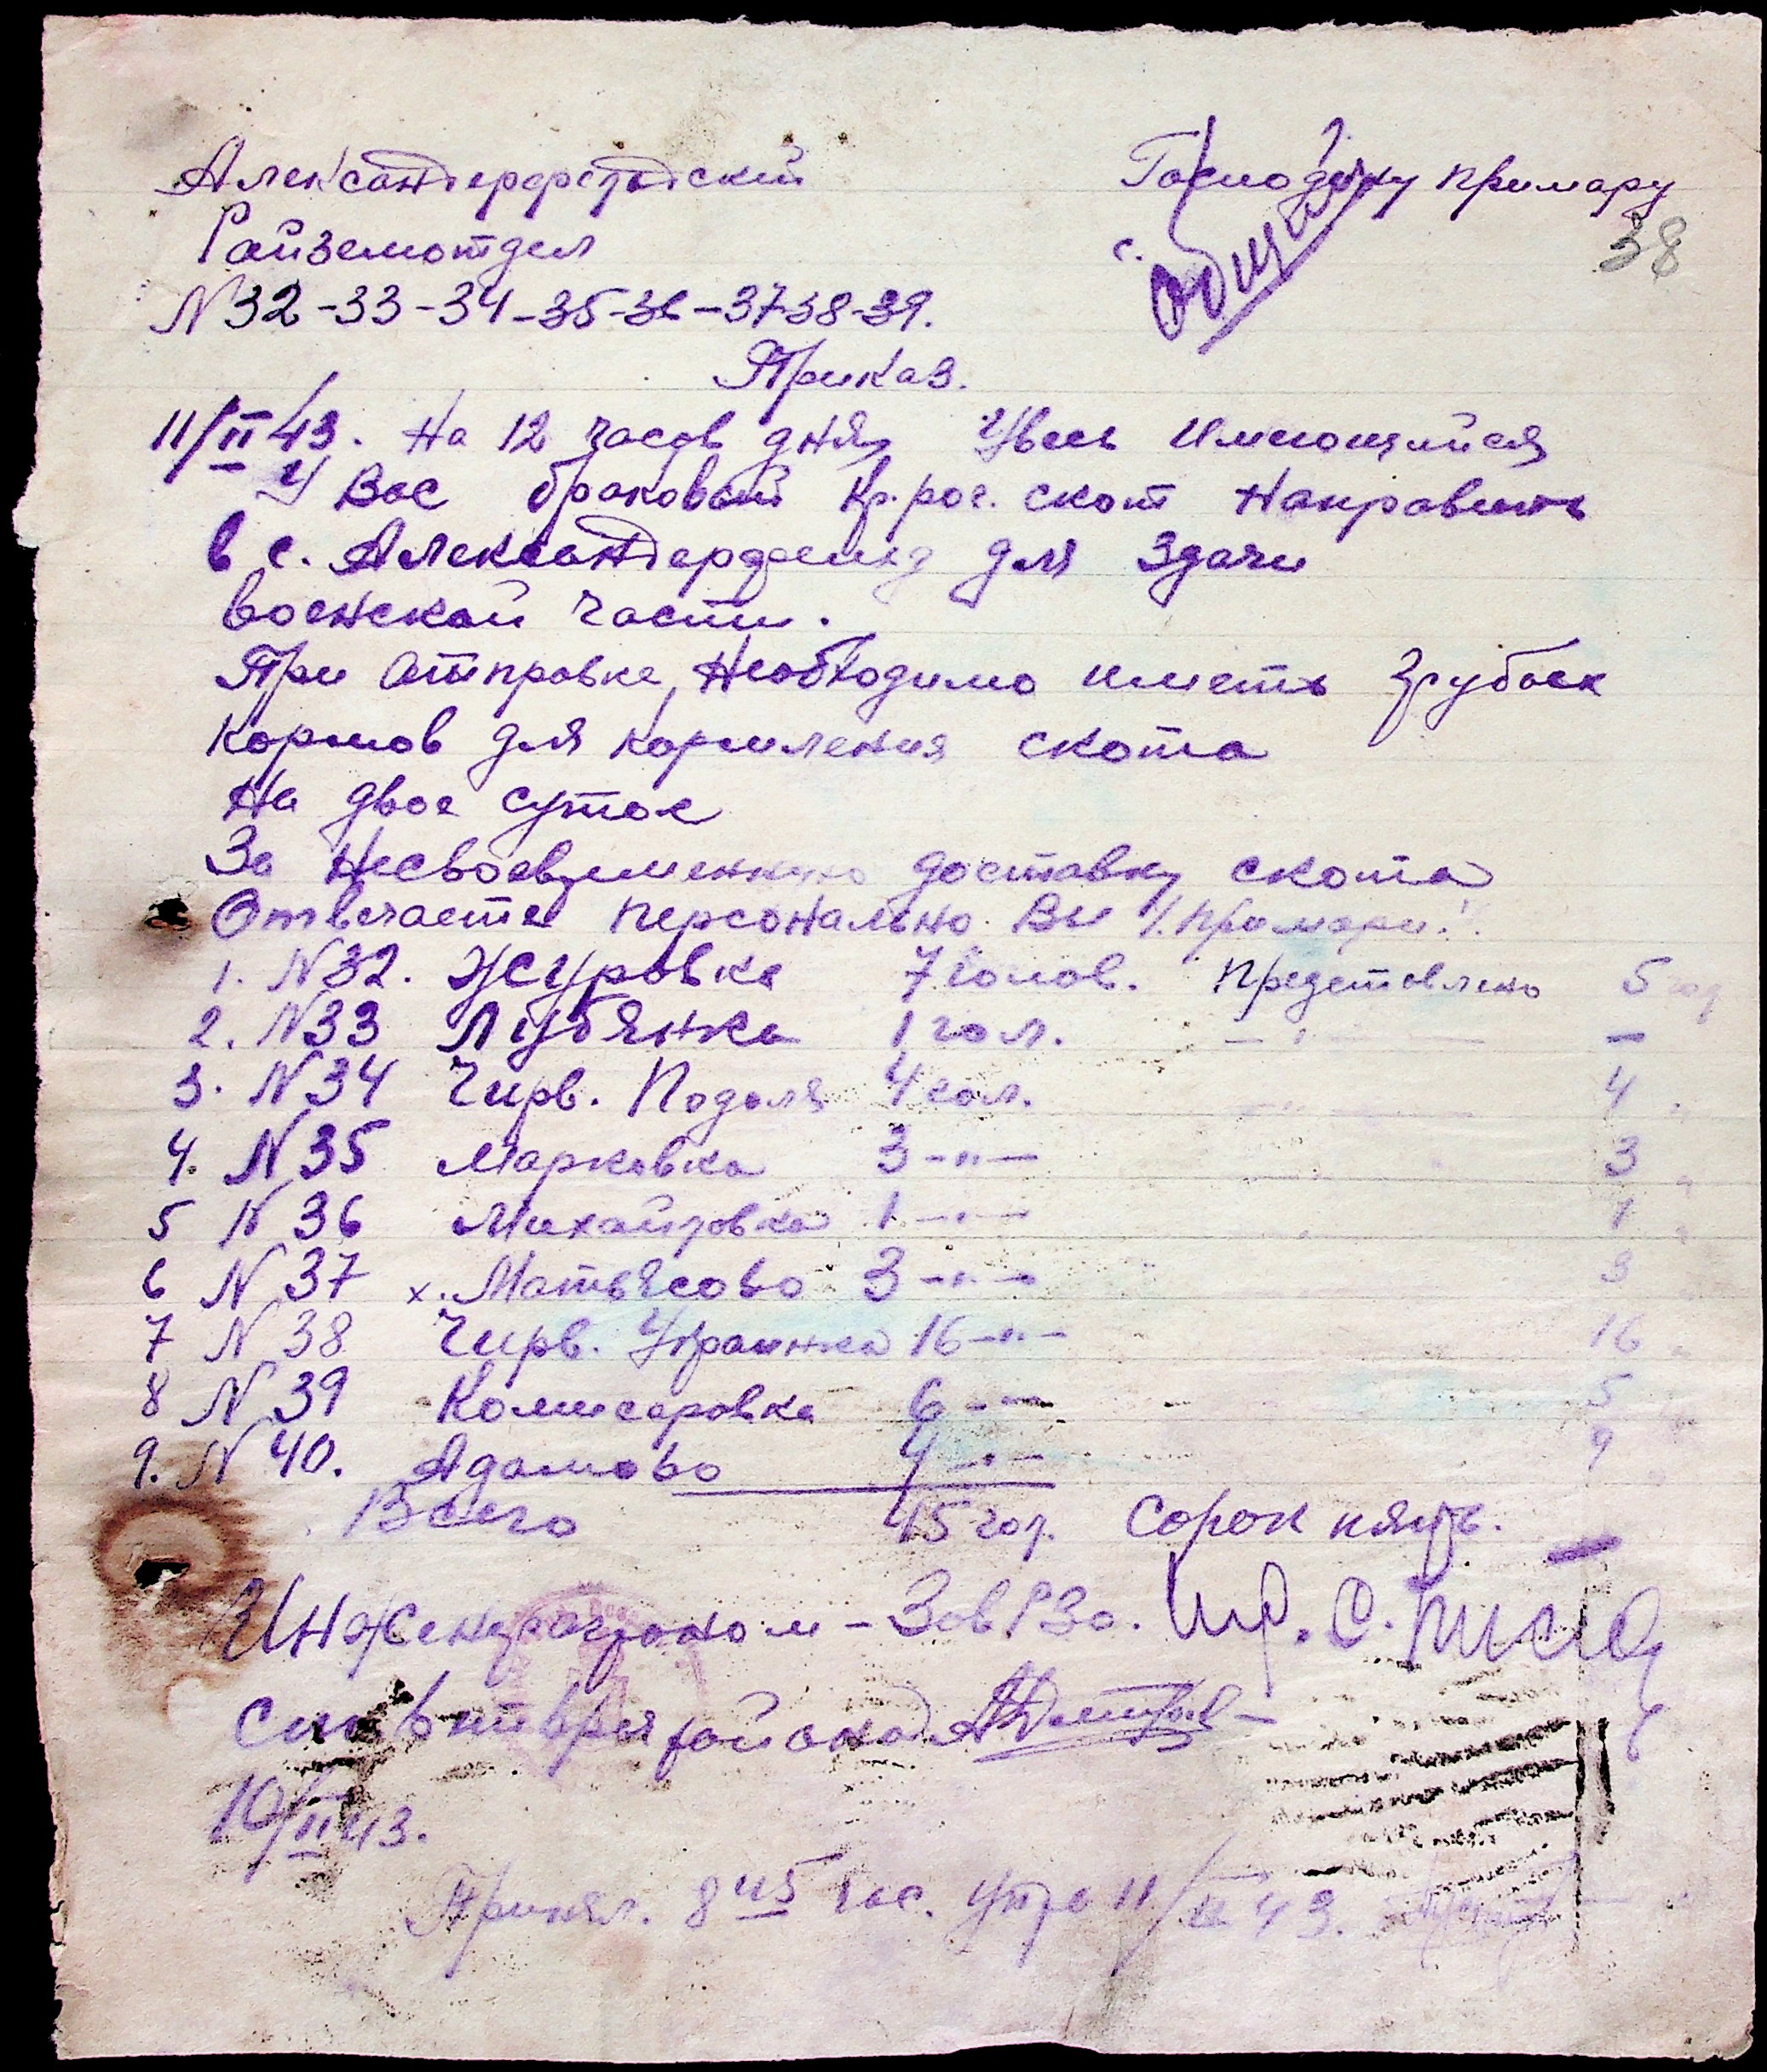 Александерфельдский
Господину примару
Райземотдел
с. Общий
38
N 32-33-34-35-36-37-38-39.
Приказ.
11/II 43. На 12 часов дня, Увесь имеющийся
У Вас браковый кр. рог. скот направить
в с. Александерфельд для здачи
воензкой части.
При Отправке, необходимо иметь
кормов для кормления скота
На двое суток
За несвоевременную доставку скота
Отвечаете персонально Вы /. примари./.
1. N 32. Журовка 7 голов. Представлено 5 гол
2. N 33 Лубянка 1 гол. — " — —
3. N 34 Чирв. Подоля 4 гол. — " — 4 "
4. N 35 Марковка 3 - " - 3 "
5 N 36 Михайловка 1 - " - " 1 "
6 N 37 х. Матьясово 3 - " - 3
7 N 38 Чирв. Украинка 16 - " - 16 "
8 N 39 Комисаровка 6 - " - 5
9. N 40. Адамово 4 - " - 9
Всего 45 гол. Сорок пять.
Инженер агроном - Зав РЗо.
района
10/II 43.
Принял. 8 45 час. утра 11/II 43.